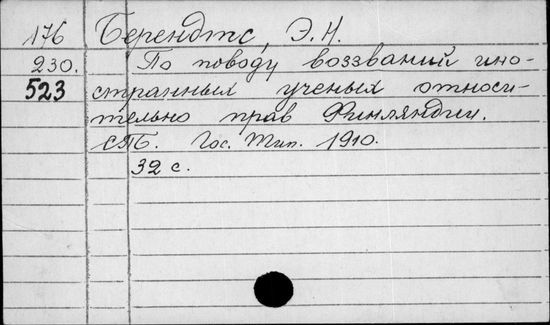 176 Берендтс, Э. Н.
230. По поводу воззваний ино-
523 странных ученых относи-
тельно прав Финляндии.
СПБ. Гос. Тип. 1910.
32 с.